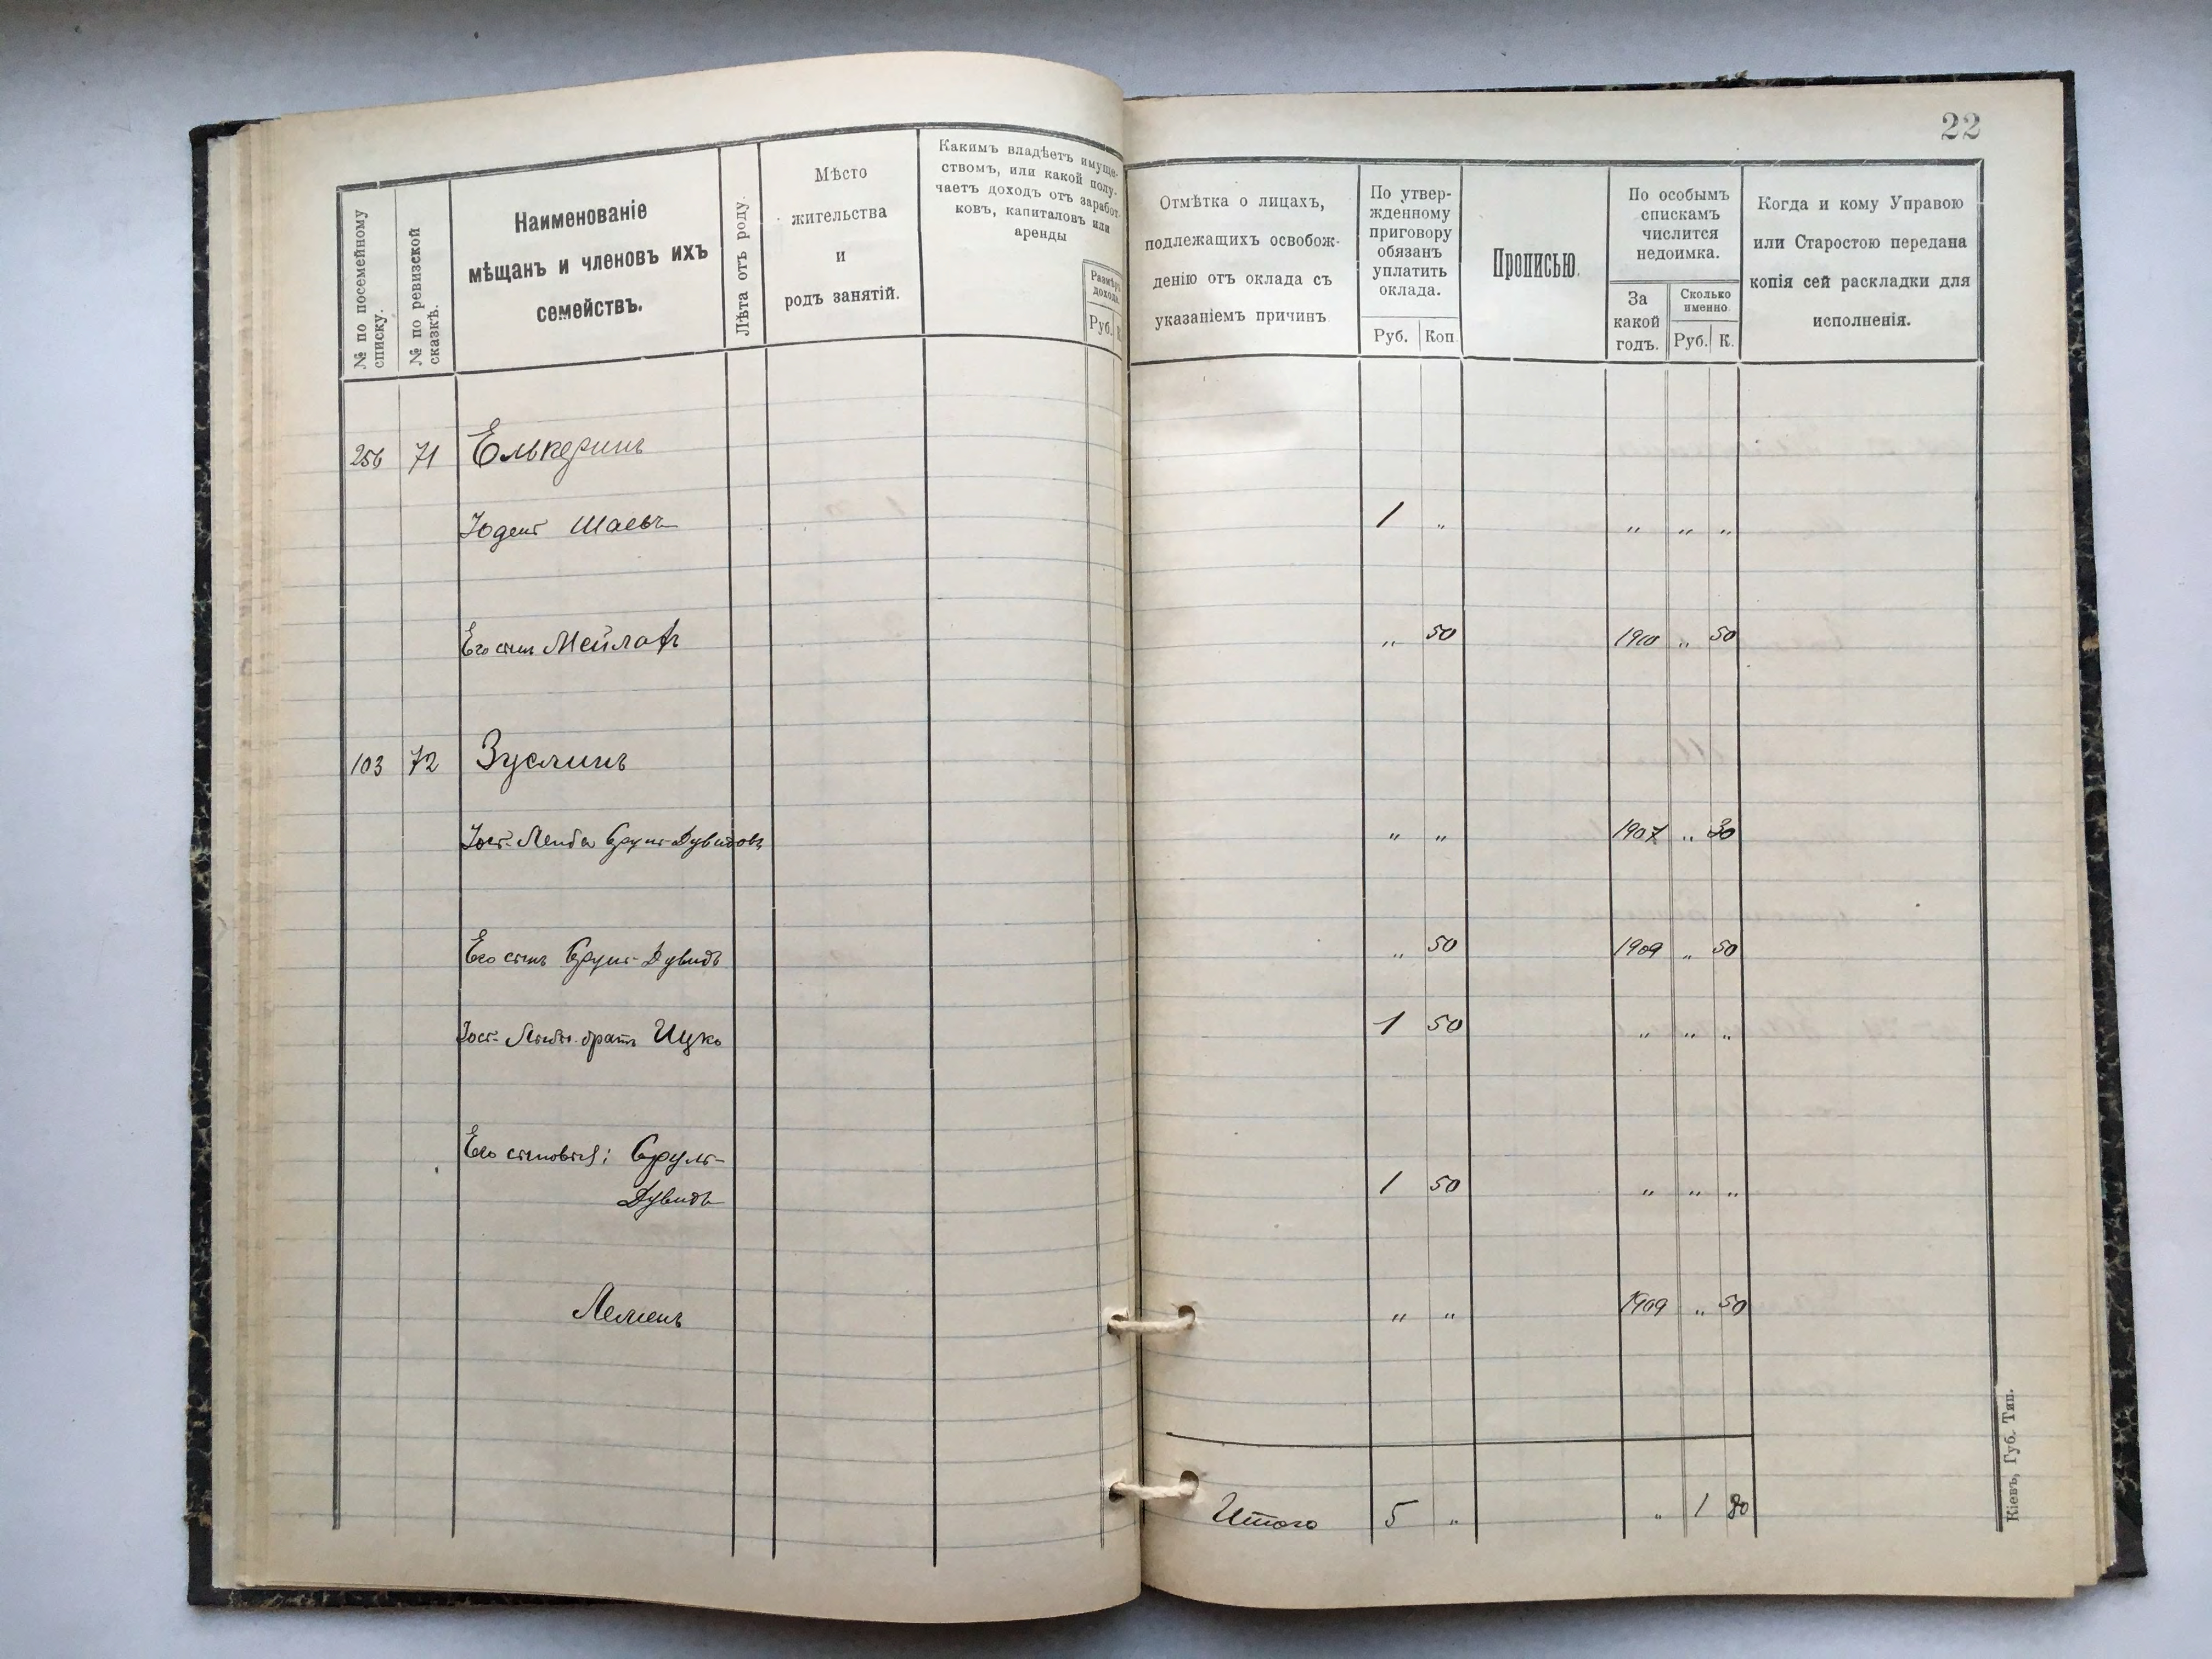 22
№ по посемейному списку.
№ по ревизской сказкѣ.
Наименованіе
мѣщанъ и членовъ ихъ
семействъ.
Лѣта отъ роду.
Мѣсто
жительства
и
родъ занятій.
Какимъ владѣетъ имуще-
ствомъ, или какой полу-
чаетъ доходъ отъ заработ-
ковъ, капиталовъ или
аренды
Размѣръ
дохода.
Руб.
Отмѣтка о лицахъ,
подлежащихъ освобож-
денію отъ оклада съ
указаніемъ причинъ
По утвер-
жденному
приговору
обязанъ
уплатить
оклада.
Руб. Коп.
Прописью.
По особымъ
спискамъ
числится
недоимка.
За
какой
годъ.
Сколько
именно.
Руб. К.
Когда и кому Управою
или Старостою передана
копія сей раскладки для
исполненія.
256 71 Елькеринъ
Шаевъ 1 „ „ „ „
Его сынъ Мейлахъ „ 50 1910 „ 50
103 72 Зуслинъ
Іось-Лейба Сруль-Дувидовъ „ „ 1907 „ 30
Его сынъ Сруль-Дувидъ „ 50 1909 „ 50
Іось-Лейбы братъ Ицко 1 50 „ „ „
Его сыновья: Сруль-
Дувидъ 1 50 „ „ „
„ „ 1909 „ 50
Итого 5 „ „ 1 80
Кіевъ, Губ. Тип.